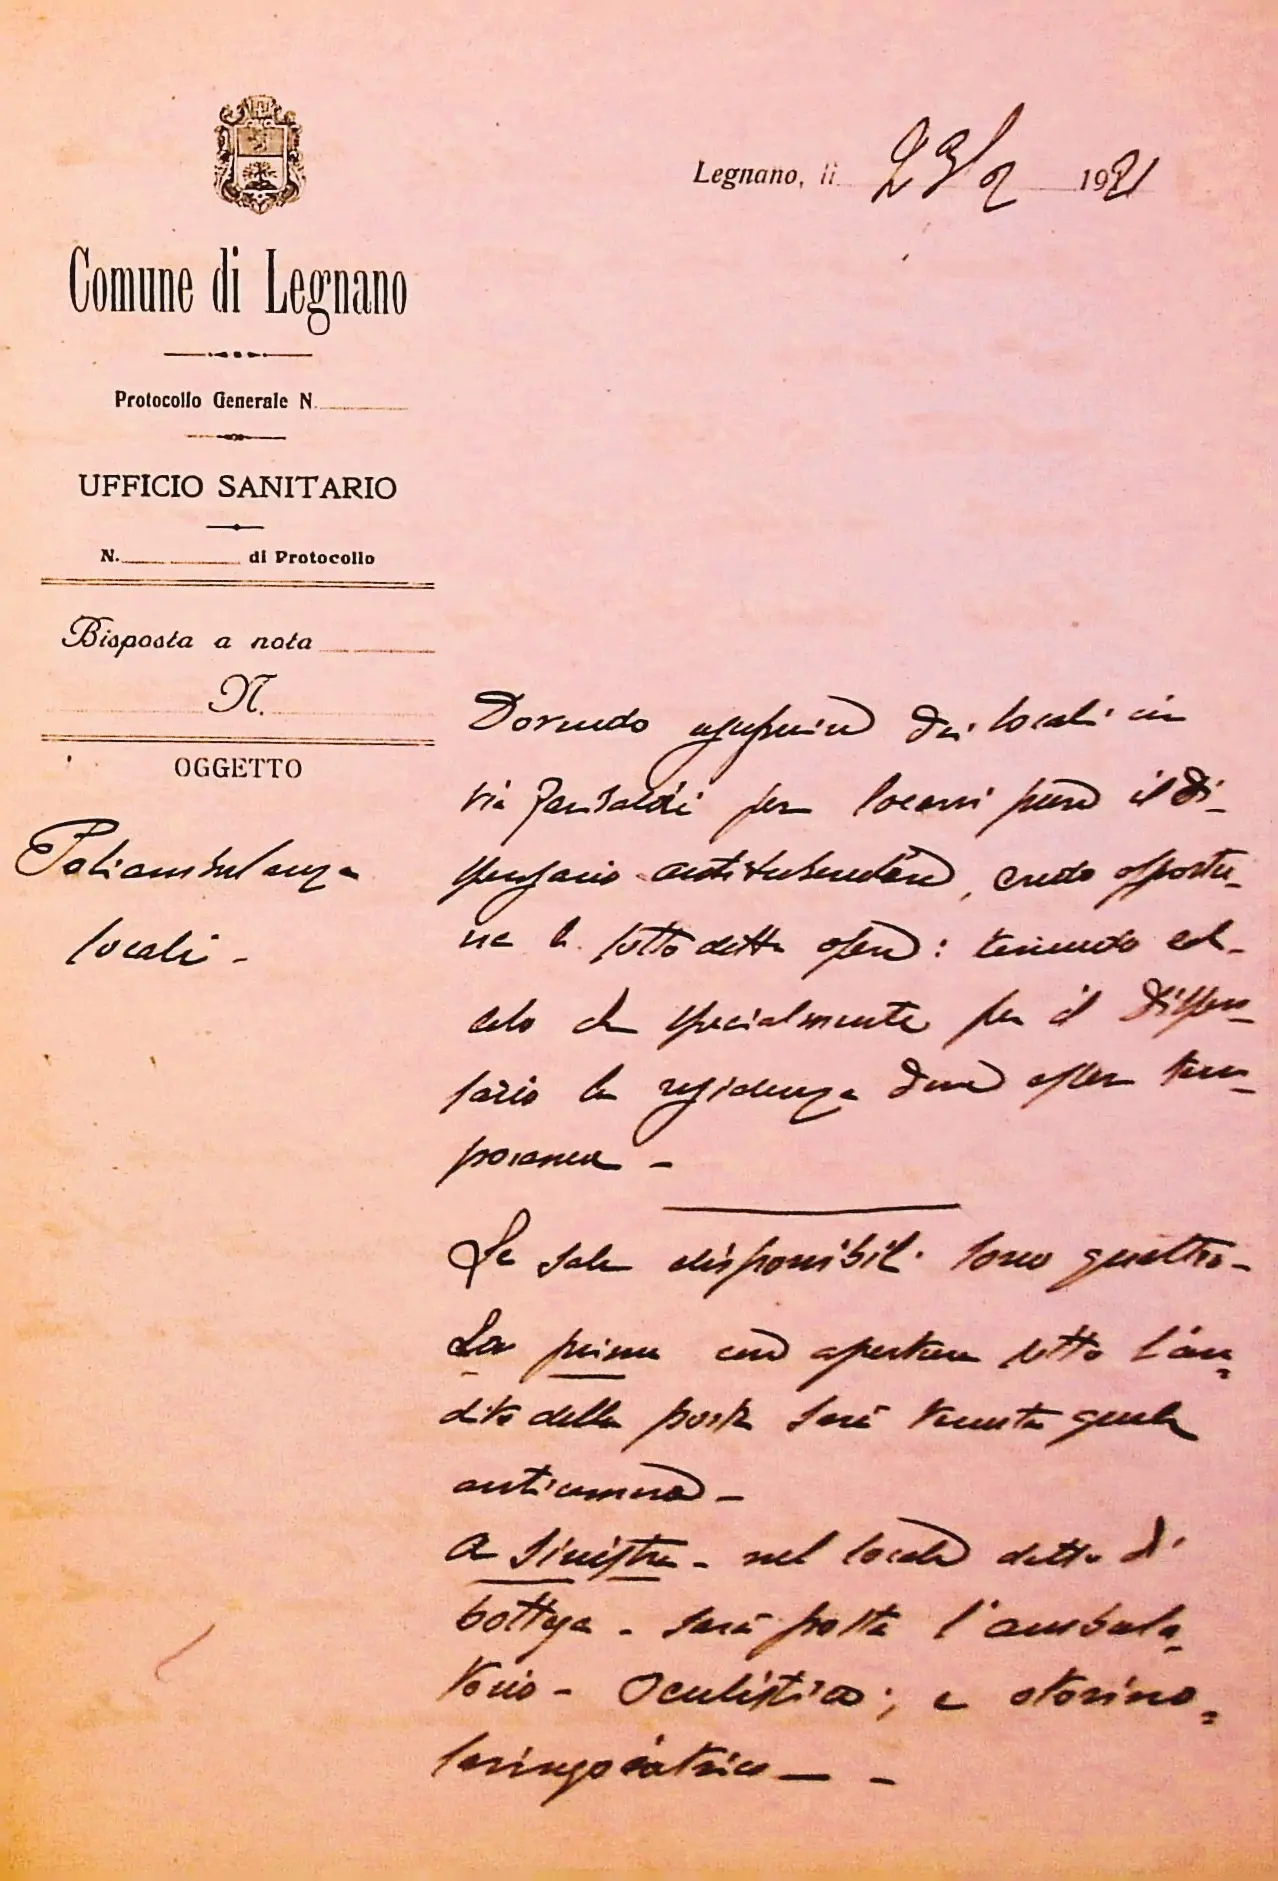 Legnano, li 23/2 1921
Comune di Legnano
Protocollo Generale N.
UFFICIO SANITARIO
N. di Protocollo
Risposta a nota
N.
OGGETTO
Poliambulanza
locali -
Dovendo dei locali in
via Garibaldi per locarvi pure il Di-
spensario antitubercolare, credo opportu-
ne le sotto dette opere: tenendo cal-
colo che specialmente per il Dispen-
sario la residenza deve esser tem-
poranea -
Le sale disponibili sono quattro -
La prima con apertura sotto l'an-
dito della porta sarà tenuta quale
anticamera -
A sinistra - nel locale detto di
bottega - sarà posta l'ambula-
torio - Oculistico; e otorino-
laringoiatrico - -